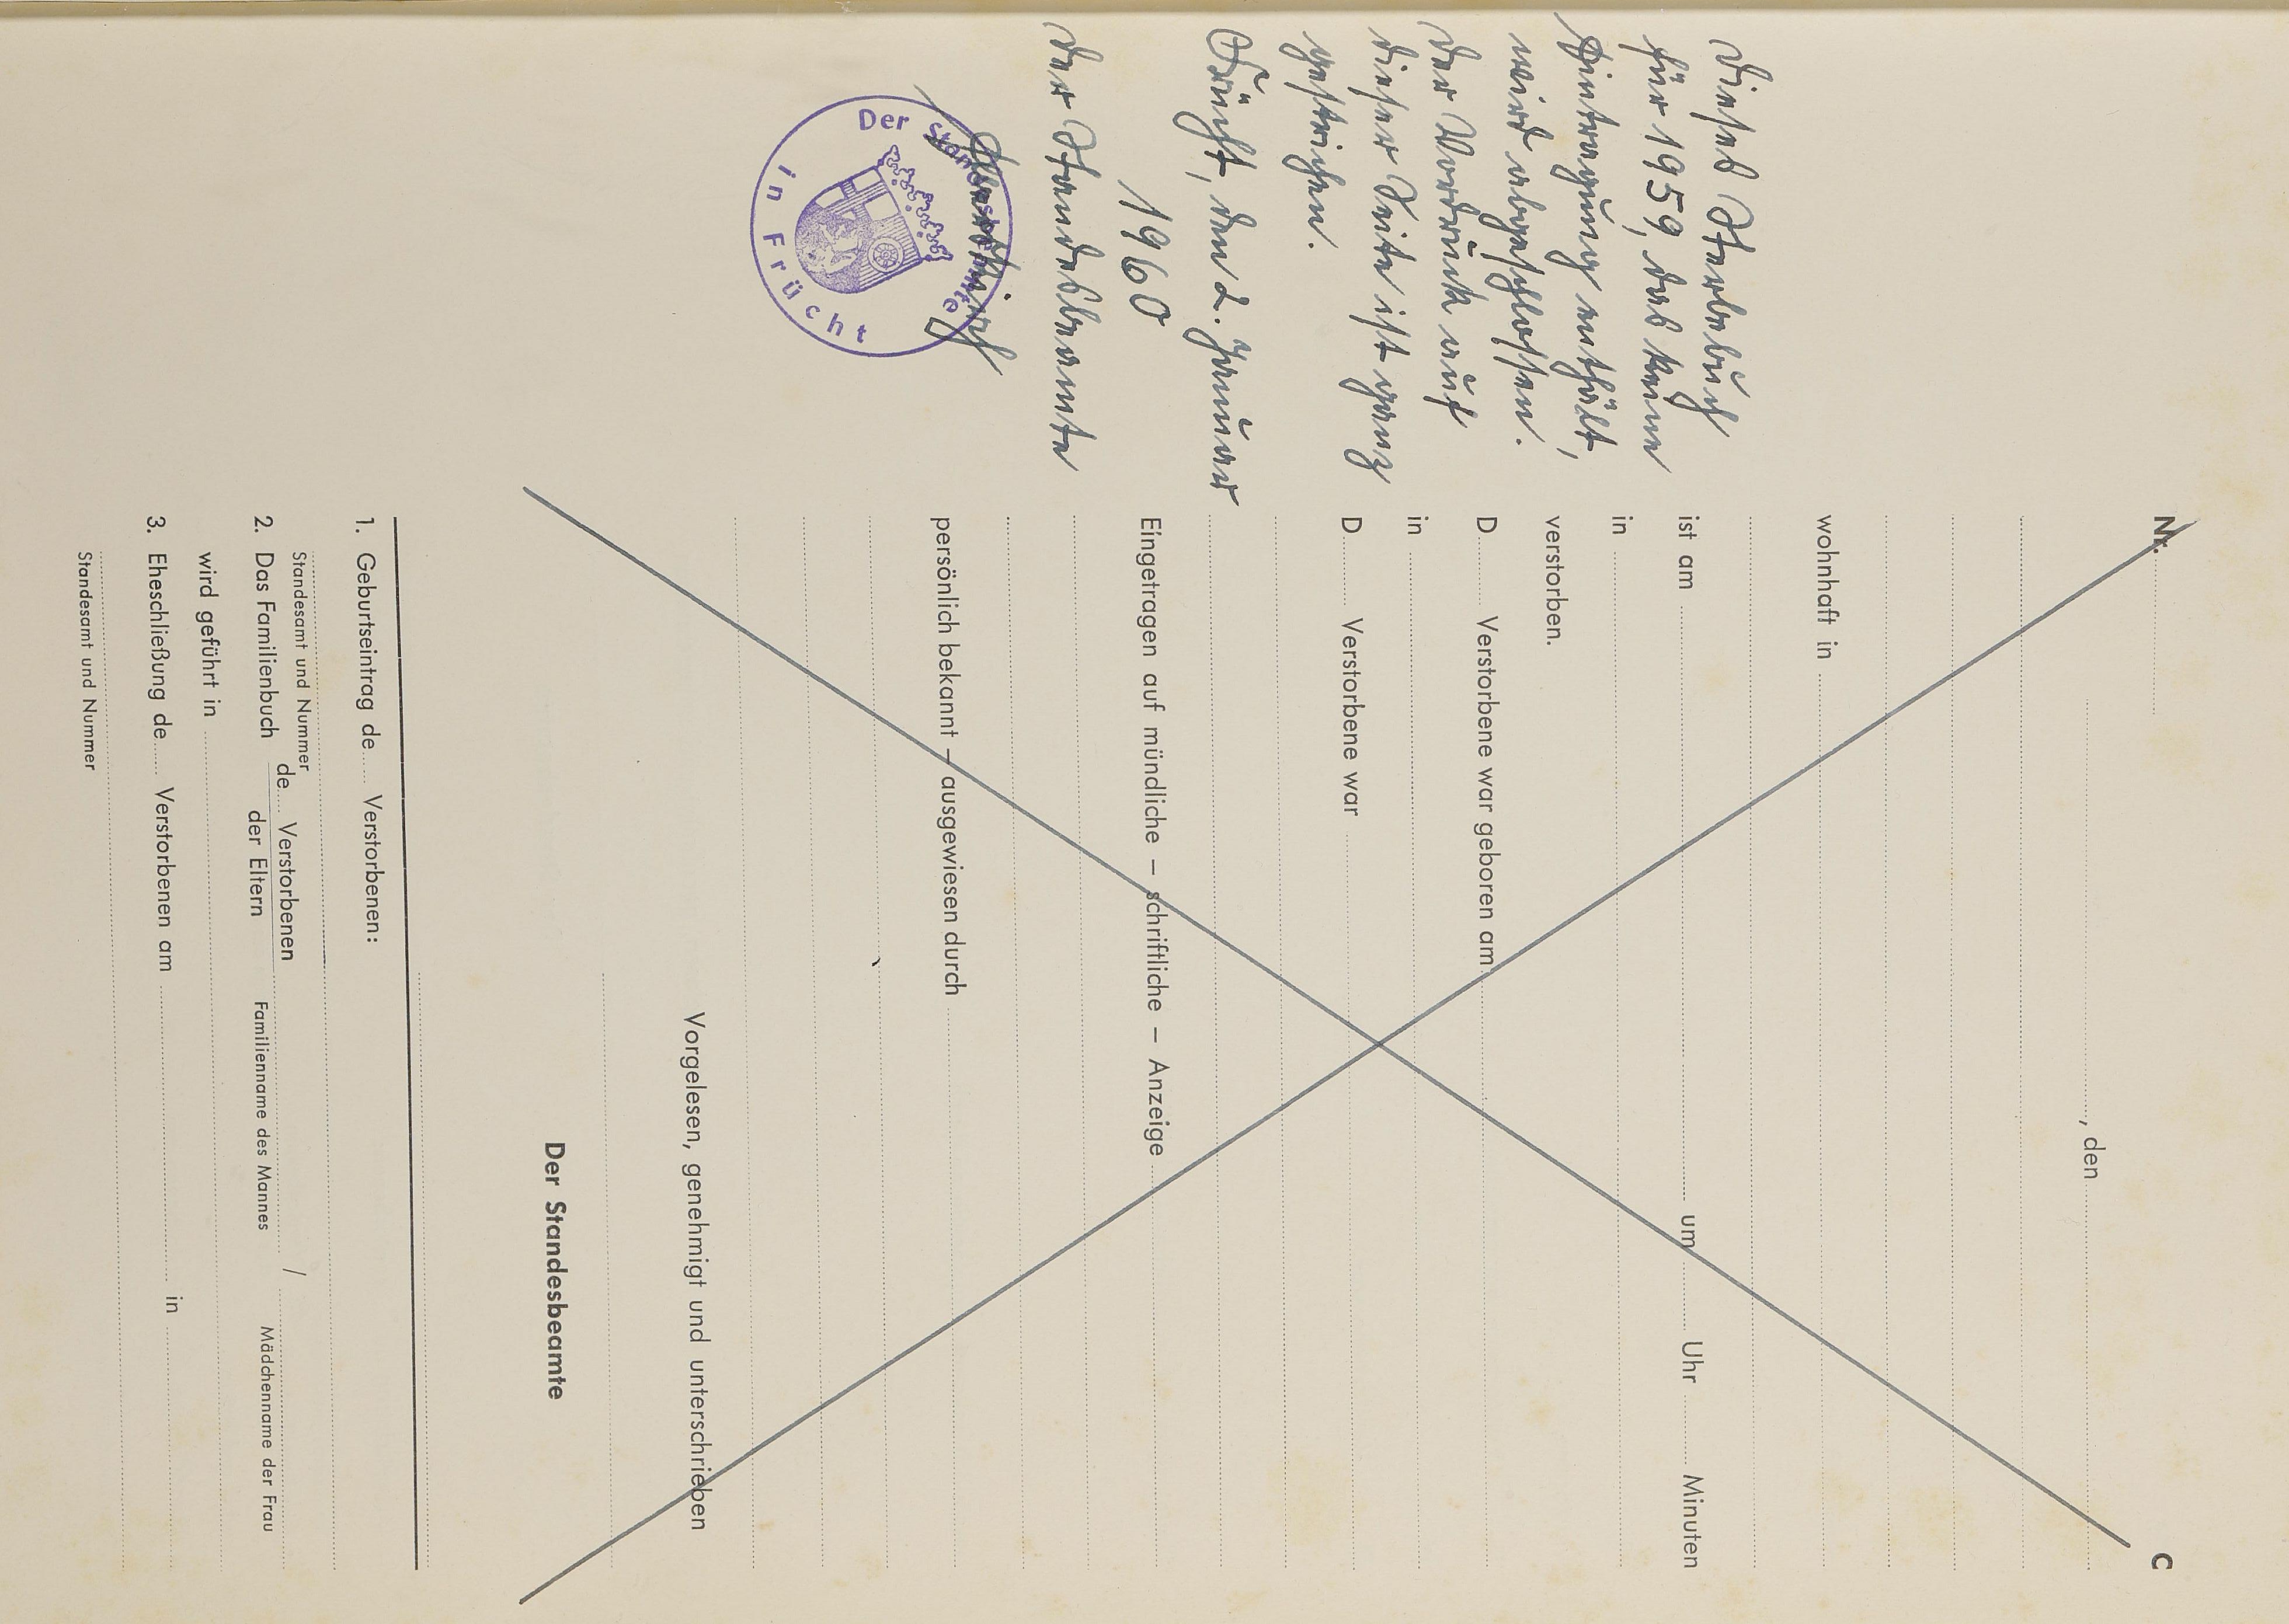 Dieses Sterbebuch
für 1959, das keine
Eintragung enthält,
wird abgeschlossen.
Der Vordruck auf
dieser Seite ist ganz
gestrichen.
Frücht, den 2. Januar
1960
Der Standesbeamte
Der Standesbeamte
in Frücht
Nr. C
, den
wohnhaft in
ist am um Uhr Minuten
in
verstorben.
D Verstorbene war geboren am
in
D Verstorbene war
Eingetragen auf mündliche – schriftliche – Anzeige
persönlich bekannt – ausgewiesen durch
Vorgelesen, genehmigt und unterschrieben
Der Standesbeamte
1. Geburtseintrag de Verstorbenen:
Standesamt und Nummer
de Verstorbenen /
2. Das Familienbuch
der Eltern Familienname des Mannes Mädchenname der Frau
wird geführt in
3. Eheschließung de Verstorbenen am in
Standesamt und Nummer